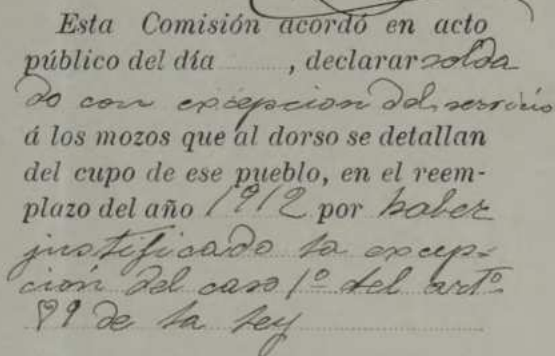 Esta Comisión acordó en acto
público del día ........, declarar solda
do con excepcion del servicio
á los mozos que al dorso se detallan
del cupo de ese pueblo, en el reem-
plazo del año 1912 por haber
justificado la excep-
ción del caso 1º del artº
89 de la ley